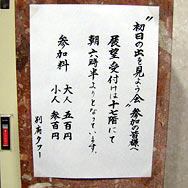 〝初日の出を見よう会〟参加の皆様へ
展望受付けは十七階にて
朝六時半よりとなっています。
参加料 大人 五百円
小人 参百円
別府タワー